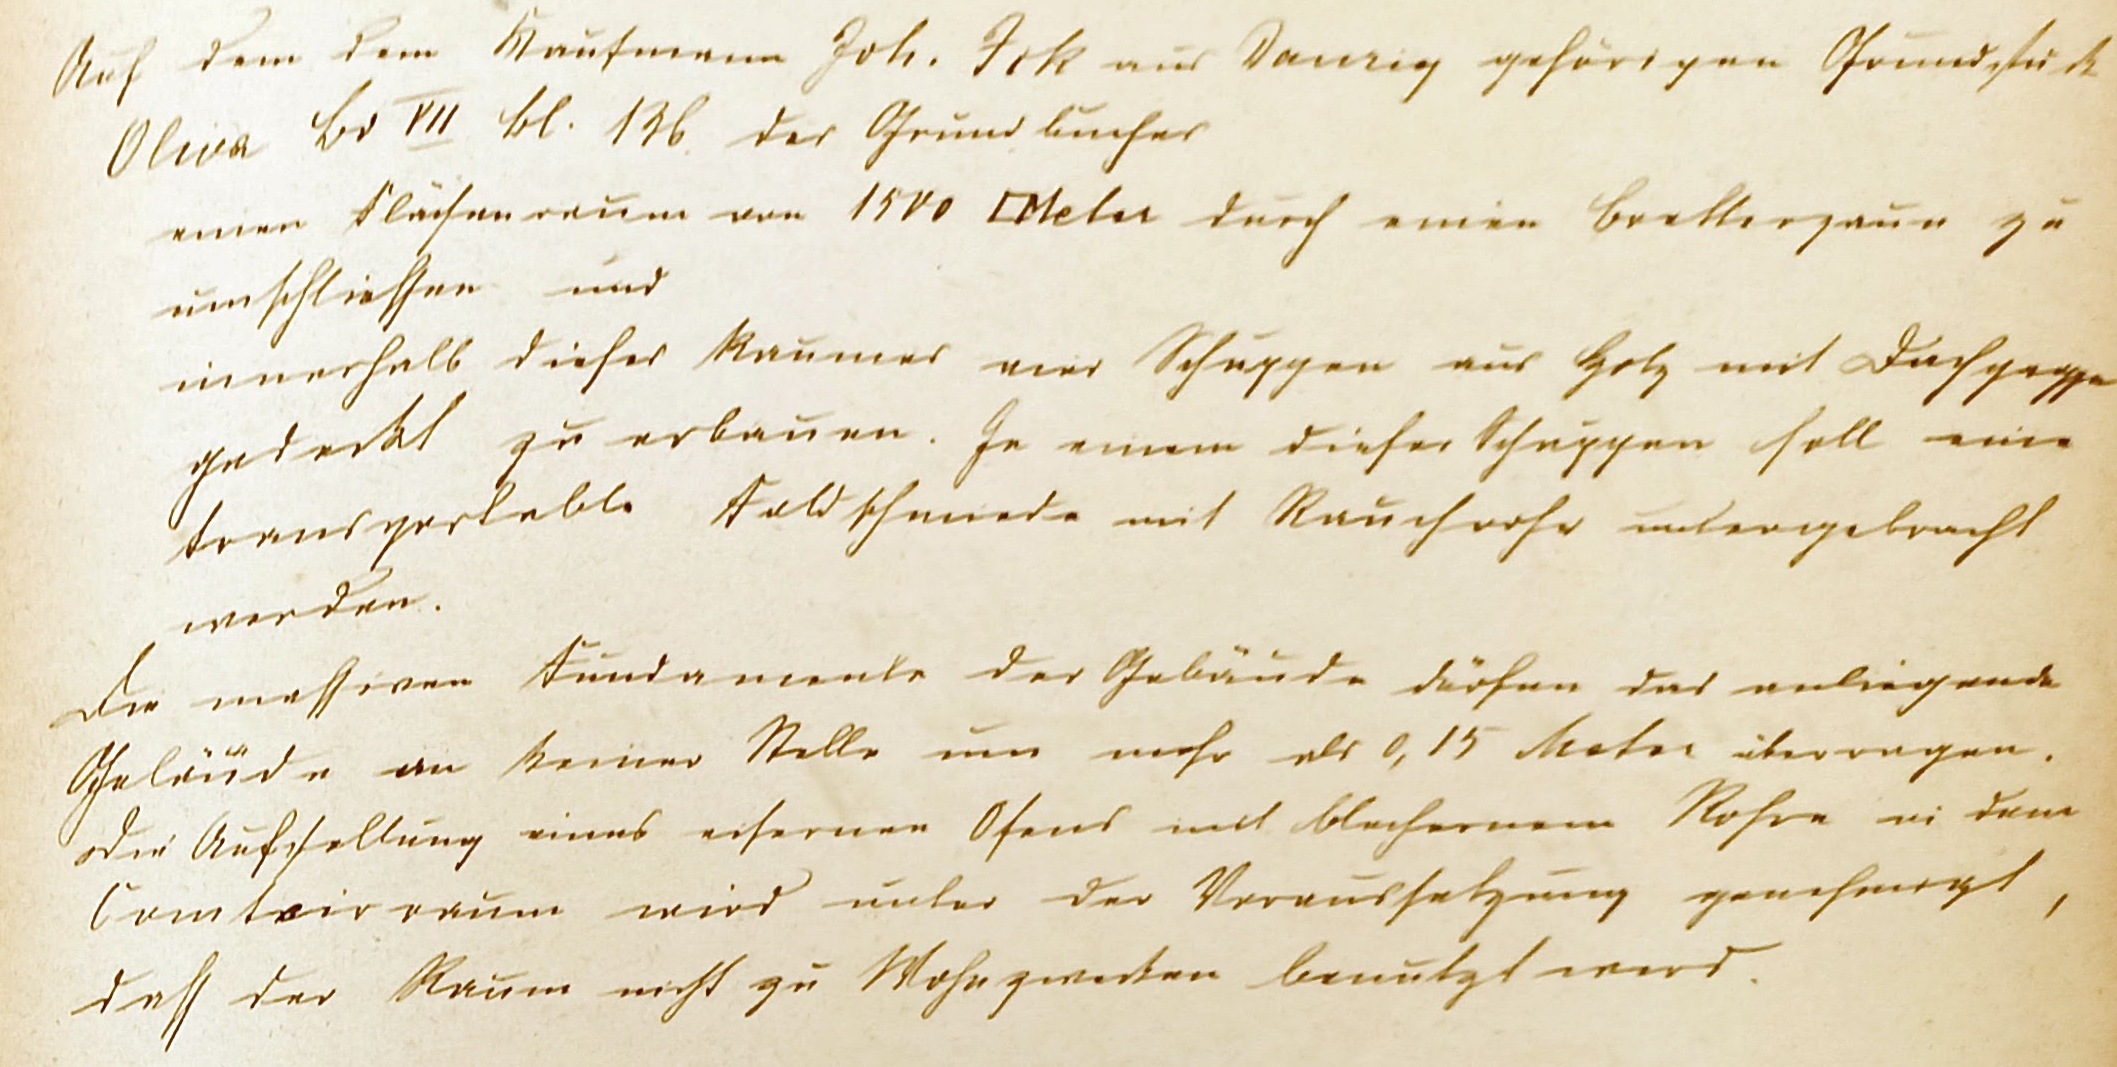 Auf dem dem Kaufmann Joh. Ick aus Danzig gehörigen Grundstück
Oliva Bd VII Bl. 136 des Grundbuches
einen Flächenraum von 1500 □Meter durch einen Bretterzaun zu
umschliessen und
innerhalb dieses Raumes vier Schuppen aus Holz mit Dachpappe
gedeckt zu erbauen. In einem dieser Schuppen soll eine
transportable Feldschmiede mit Rauchrohr untergebracht
werden.
Die massiven Fundamente der Gebäude dürfen das anliegende
Gelände an keiner Stelle um mehr als 0,15 Meter überragen.
Die Aufstellung eines eisernen Ofens mit blechernem Rohre in dem
Comtoirraum wird unter der Voraussetzung genehmigt,
dass der Raum nicht zu Wohnzwecken benutzt wird.